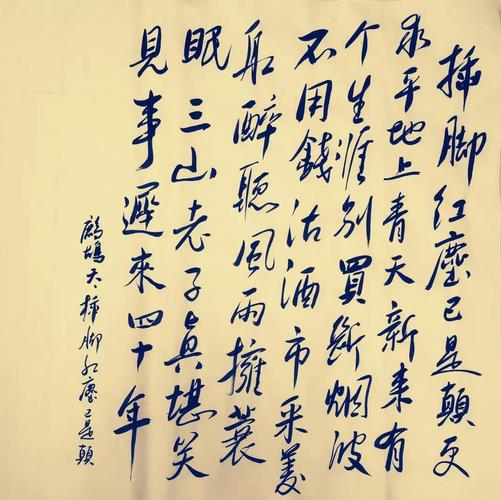 插脚红塵已是顛更
求平地上青天新来有
个生涯别買断烟波
不用錢沽酒市采菱
船醉聽風雨擁蓑
眠三山老子真堪笑
見事遲來四十年
鷓鴣天插脚红塵已是顛